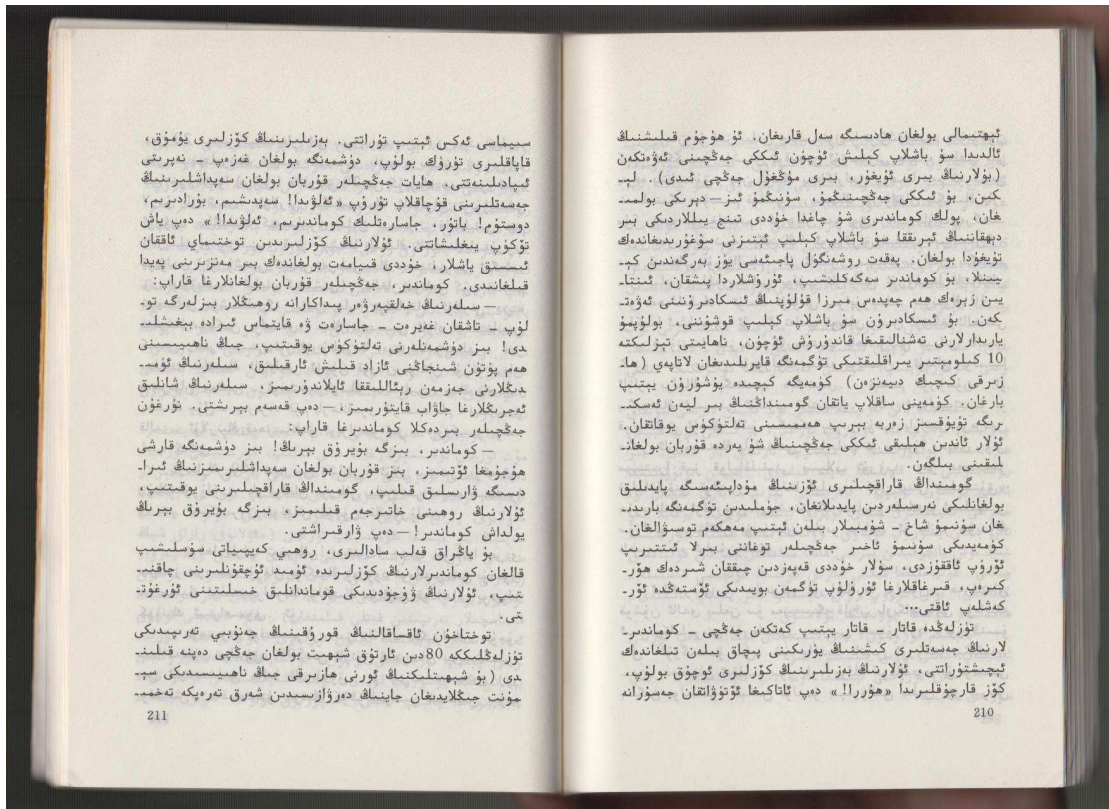 ئېھتىمالى بولغان ھادىسىگە سەل قارىغان. ئۇ ھۇجۇم قىلىشنىڭ
ئالدىدا سۇ باشلاپ كېلىش ئۈچۈن ئىككى جەڭچىنى ئەۋەتكەن
(بۇلارنىڭ بىرى ئۇيغۇر، بىرى موڭغۇل جەڭچى ئىدى). لې‍
كىن، بۇ ئىككى جەڭچىنىڭمۇ، سۇنىڭمۇ ئىز – دېرىكى بولمى‍
غان، پولك كوماندىرى شۇ چاغدا خۇددى تىنچ يىللاردىكى بىر
دېھقاننىڭ ئېرىققا سۇ باشلاپ كېلىپ ئېتىزنى سۇغۇرىدىغاندەك
تۇيغۇدا بولغان. پەقەت روشەنگۈل پاجىئەسى يۈز بەرگەندىن كې‍
يىنلا، بۇ كوماندىر سەگەكلىشىپ، ئۇرۇشلاردا پىشقان، ئىنتا‍
يىن زېرەك ھەم چەپدەس مىرزا قۇلۇپنىڭ ئىسكادىرونىنى ئەۋەت‍
كەن. بۇ ئىسكادىرون سۇ باشلاپ كېلىپ قوشۇننى، بولۇپمۇ
يارىدارلارنى تەشنالىقىغا قاندۇرۇش ئۈچۈن، ناھايىتى تېزلىكتە
10 كىلومېتىر يىراقلىقتىكى تۈگمەنگە قايرىلىدىغان لاتاپەي (ھا‍
زىرقى كىچىك دىيەنزەن) كۆمەيگە كېچىدە يوشۇرۇن يېتىپ
بارغان. كۆمەينى ساقلاپ ياتقان گومىنداڭنىڭ بىر ليەن ئەسكى‍
رىگە تۇيۇقسىز زەربە بېرىپ ھەممىسىنى تەلتۆكۈس يوقاتقان.
ئۇلار ئاندىن ھېلىقى ئىككى جەڭچىنىڭ شۇ يەردە قۇربان بولغان‍
لىقىنى بىلگەن.
گومىنداڭ قاراقچىلىرى ئۆزىنىڭ مۇداپىئەسىگە پايدىلىق
بولغانلىكى نەرسىلەردىن پايدىلانغان، جۈملىدىن تۈگمەنگە بارىدى‍
غان سۇنىمۇ شاخ – شۈمبىلار بىلەن ئېتىپ مەھكەم توسۇۋالغان.
كۆمەيدىكى سۇنىمۇ ئاخىر جەڭچىلەر توغاننى بىرلا ئىتتىرىپ
ئۆرۈپ ئاققۇزدى، سۇلار خۇددى قەپەزدىن چىققان شىردەك ھۆر‍
كىرەپ، قىرغاقلارغا ئۇرۇلۇپ تۈگمەن بويىدىكى ئۆستەڭدە ئۆر‍
كەشلەپ ئاقتى...
تۈزلەڭدە قاتار – قاتار يېتىپ كەتكەن جەڭچى – كوماندىر‍
لارنىڭ جەسەتلىرى كىشىنىڭ يۈرىكىنى پىچاق بىلەن تىلغاندەك
ئېچىشتۇراتتى، ئۇلارنىڭ بەزىلىرىنىڭ كۆزلىرى ئوچۇق بولۇپ،
كۆز قارچۇقلىرىدا «ھۇررا!» دەپ ئاتاكىغا ئۆتۈۋاتقان جەسۇرانە
210
سىيماسى ئەكس ئېتىپ تۇراتتى. بەزىلىرىنىڭ كۆزلىرى يۇمۇق،
قاپاقلىرى تۈرۈك بولۇپ، دۈشمەنگە بولغان غەزەپ – نەپرىتى
ئىپادىلىنەتتى. ھايات جەڭچىلەر قۇربان بولغان سەپداشلىرىنىڭ
جەسەتلىرىنى قۇچاقلاپ تۇرۇپ «ئەلۋىدا! سەپدىشىم، بۇرادىرىم،
دوستۇم! باتۇر، جاسارەتلىك كوماندىرىم، ئەلۋىدا!» دەپ ياش
تۆكۈپ يىغلىشاتتى. ئۇلارنىڭ كۆزلىرىدىن توختىماي ئاققان
ئىسسىق ياشلار، خۇددى قىيامەت بولغاندەك بىر مەنزىرىنى پەيدا
قىلغانىدى. كوماندىر، جەڭچىلەر قۇربان بولغانلارغا قاراپ:
— سىلەرنىڭ خەلقپەرۋەر پىداكارانە روھىڭلار بىزلەرگە تو‍
لۇپ – تاشقان غەيرەت – جاسارەت ۋە قايتماس ئىرادە بېغىشلى‍
دى! بىز دۈشمەنلەرنى تەلتۆكۈس يوقىتىپ، جىڭ ناھىيىسىنى
ھەم پۈتۈن شىنجاڭنى ئازاد قىلىش ئارقىلىق، سىلەرنىڭ ئۈمى‍
دىڭلارنى جەزمەن رېئاللىققا ئايلاندۇرىمىز، سىلەرنىڭ شانلىق
ئەجرىڭلارغا جاۋاب قايتۇرىمىز، — دەپ قەسەم بېرىشتى. تۇرغۇن
جەڭچىلەر بىردەكلا كوماندىرغا قاراپ:
— كوماندىر، بىزگە بۇيرۇق بېرىڭ! بىز دۈشمەنگە قارشى
ھۇجۇمغا ئۆتىمىز، بىز قۇربان بولغان سەپداشلىرىمىزنىڭ ئىرا‍
دىسىگە ۋارىسلىق قىلىپ، گومىنداڭ قاراقچىلىرىنى يوقىتىپ،
ئۇلارنىڭ روھىنى خاتىرجەم قىلىمىز، بىزگە بۇيرۇق بېرىڭ
يولداش كوماندىر! — دەپ ۋارقىراشتى.
بۇ ياڭراق قەلب سادالىرى، روھىي كەيپىياتى سۇسلىشىپ
قالغان كوماندىرلارنىڭ كۆزلىرىدە ئۈمىد ئۇچقۇنلىرىنى چاقنى‍
تىپ، ئۇلارنىڭ ۋۇجۇدىدىكى قوماندانلىق خىسلىتىنى ئۇرغۇت‍
تى.
توختاخۇن ئاقساقالنىڭ قورۇقىنىڭ جەنۇبىي تەرىپىدىكى
تۈزلەڭلىككە 80دىن ئارتۇق شېھىت بولغان جەڭچى دەپنە قىلىن‍
دى (بۇ شېھىتلىكنىڭ ئورنى ھازىرقى جىڭ ناھىيىسىدىكى سې‍
مۇنت جىڭلايدىغان جاينىڭ دەرۋازىسىدىن شەرق تەرەپكە تەخمى‍
211